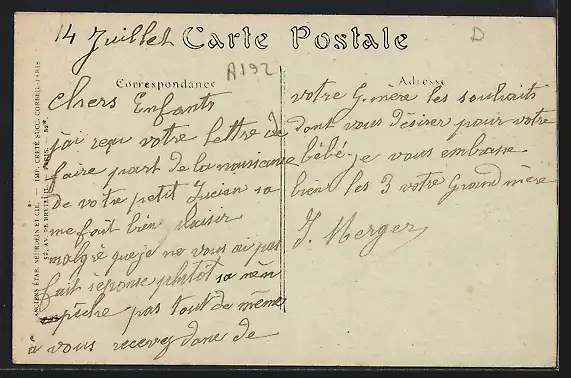 14 Juillet
Carte Postale
D
A192
Correspondance
Adresse
chers Enfants
j'ai reçu votre lettre de
faire part de la naissance
de votre petit Lucien sa
me fait bien plaisir
malgré que je ne vous ai pas
fait réponse plutôt sa n'en
pêche pas tout de même
à vous recevez donc de
votre G. mère les souhaits
dont vous désirer pour votre
bébé. je vous embrasse
bien les 3 votre Grand mère
J. Merger
ANCIENS ÉTAB. NEURDEIN ET CIE. — IMP. CRÉTÉ SUCC. CORBEIL-PARIS
52, AV. DE BRETEUIL — PARIS.